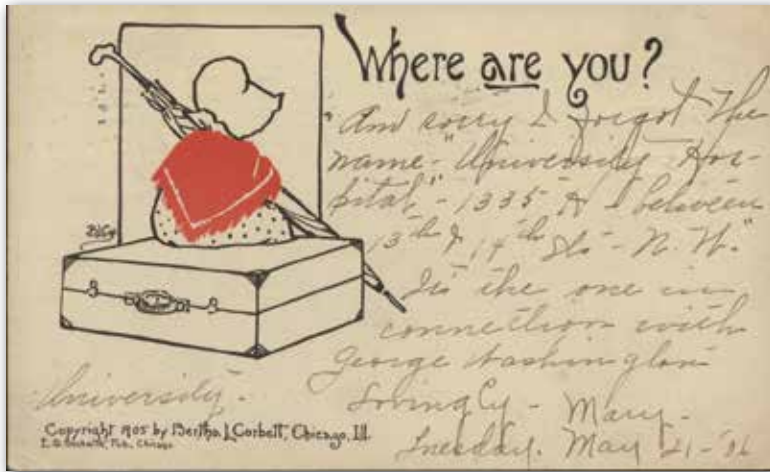 Where are you?
"And sorry I forgot the
name - "University Hos-
pital" - 1335 H - between
13th & 14th Sts - N. W."
Its the one in
connection with
George Washington
University.
Lovingly - Mary -
Tuesday. May 21 - '06
Copyright 1905 by Bertha L. Corbett, Chicago, Ill.
Pub., Chicago